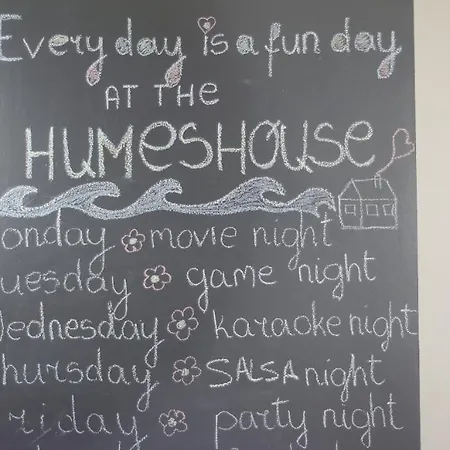 Every day is a fun day
AT THE
HUMESHOUSE
onday movie night
uesday game night
Wednesday karaoke night
hursday SALSA night
riday party night